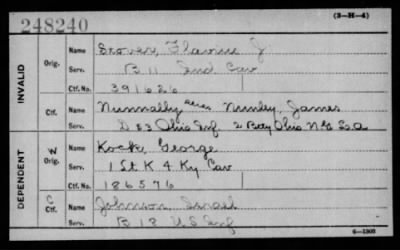 (3-H-4)
248240
INVALID
Orig. Name Stover, J
Serv. B 11 Ind Cav
Ctf. No. 391626
Ctf. Name Nunnally alias Nunley, James
Serv. D 53 Ohio Inf. 2 Bat'y Ohio
DEPENDENT
W Orig. Name Kock, George
Serv. 1 Lt K 4 Ky Cav
Ctf. No. 186576
C Ctf. Name Johnson, Israel
Serv. B 18 US Inf
6-1903